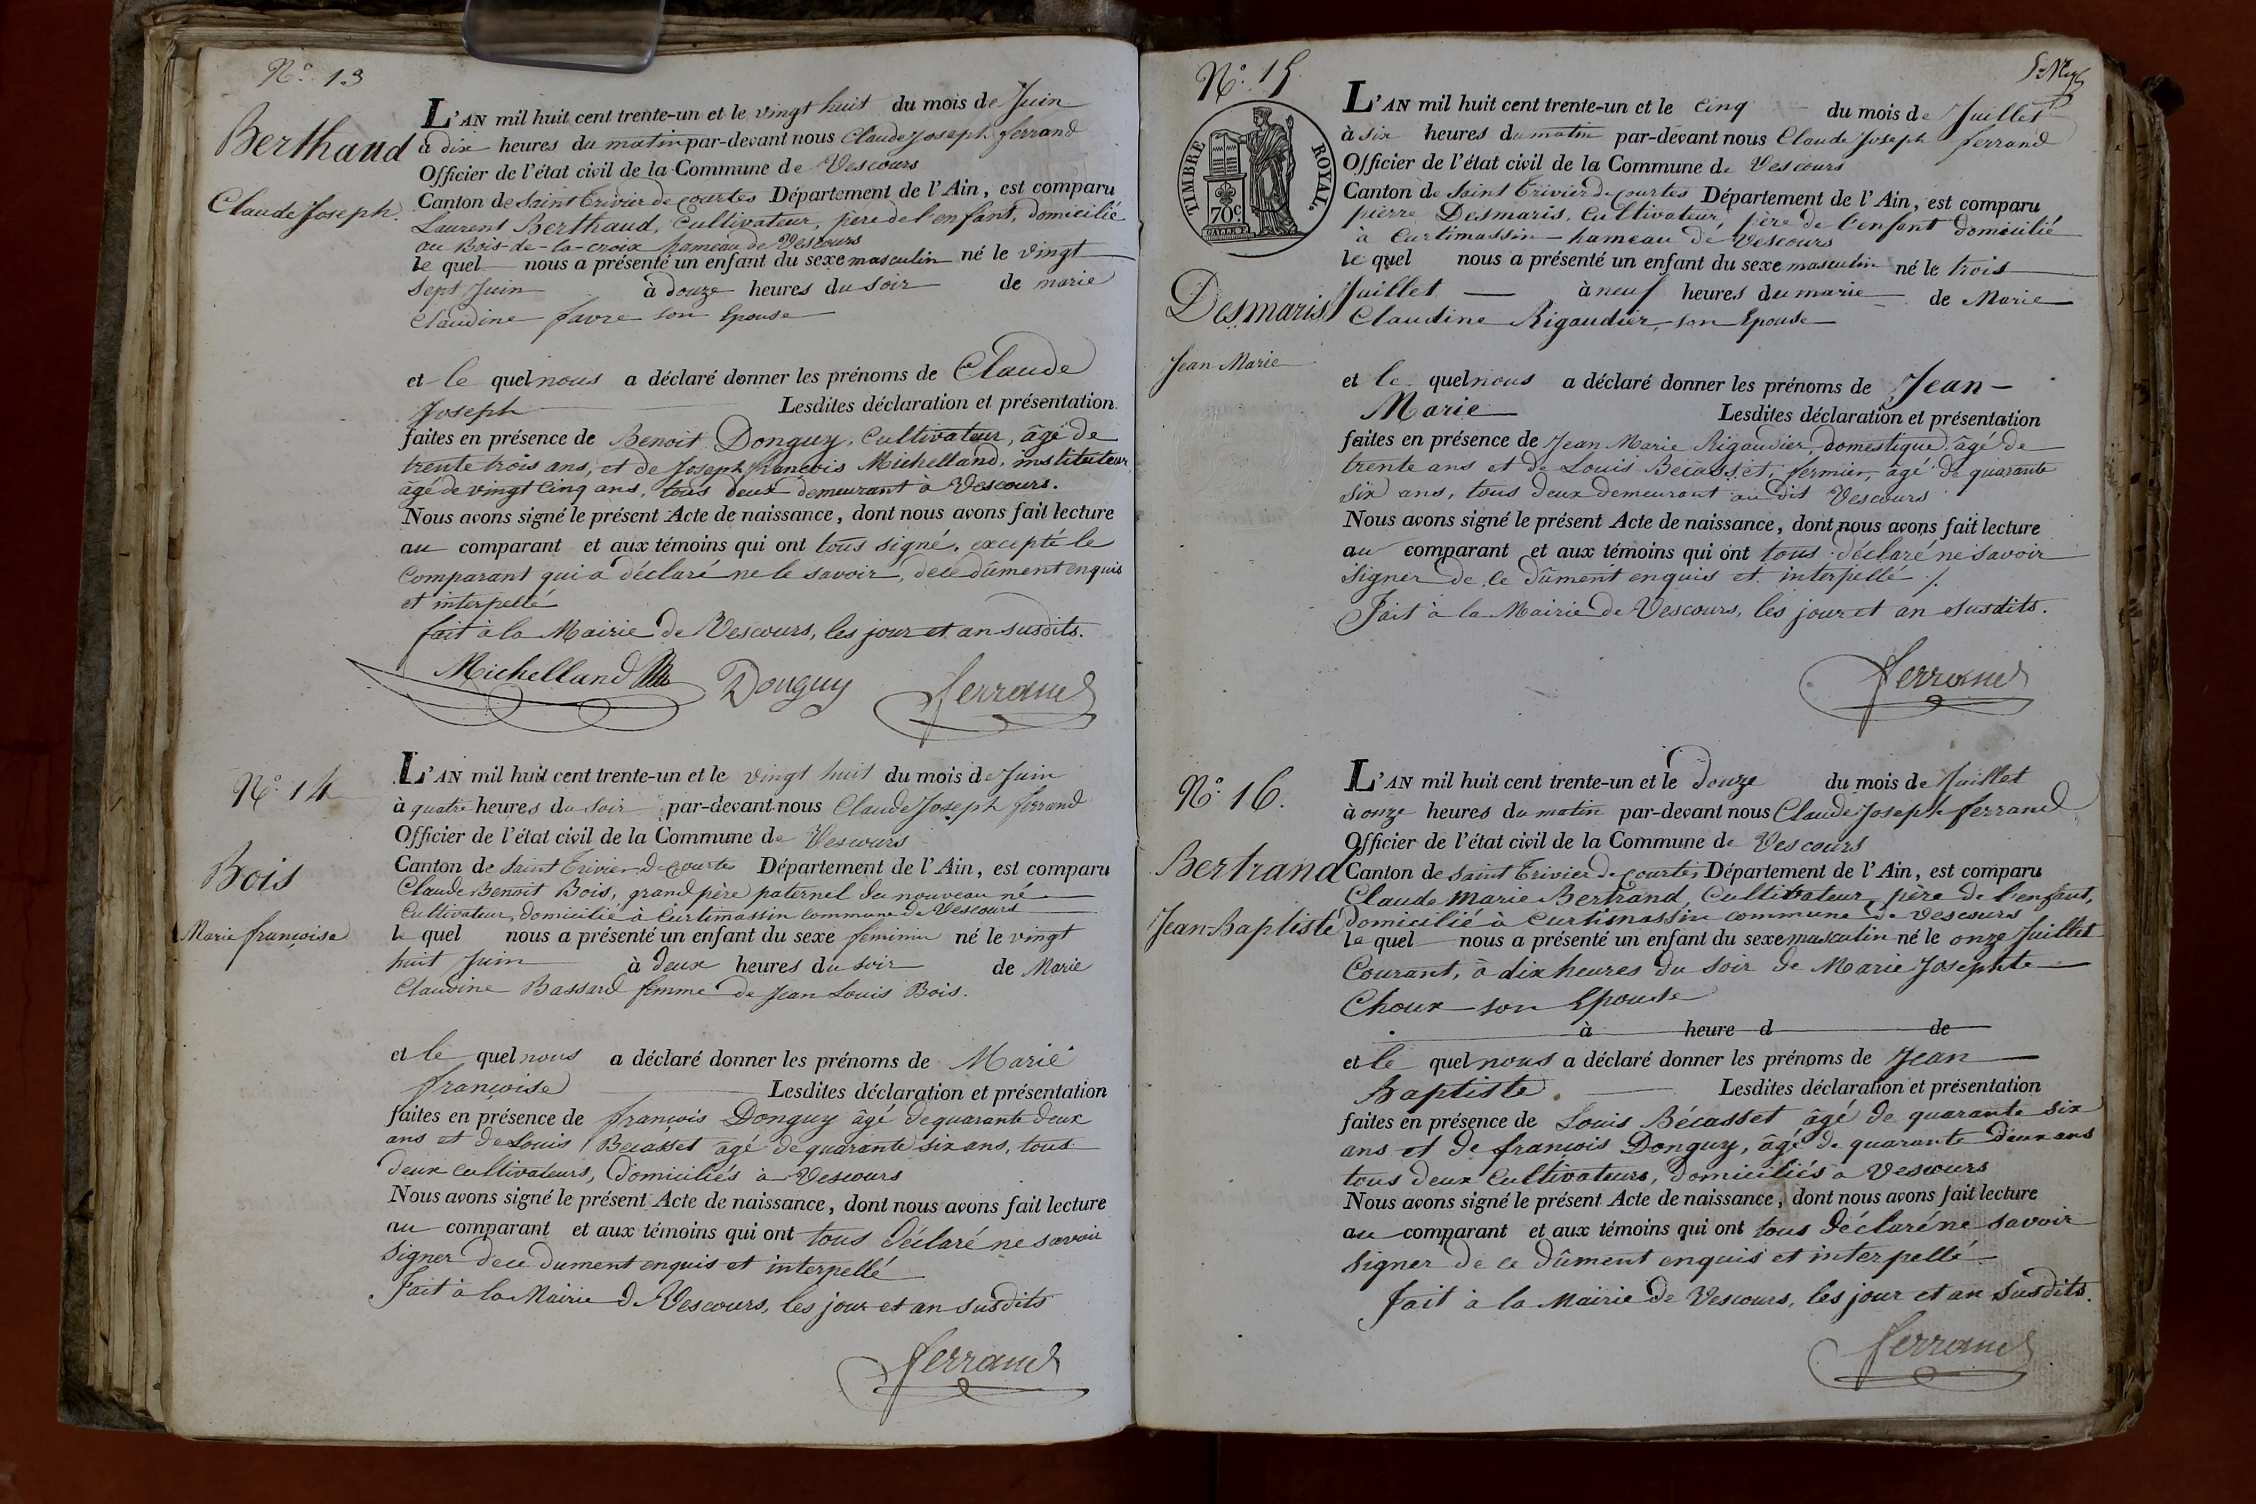 N.° 13
Berthaud
Claude Joseph.
L'AN mil huit cent trente-un et le vingt huit du mois de Juin
à dix heures du matin par-devant nous Claude Joseph ferrand
Officier de l'état civil de la Commune de Vescours
Canton de Saint Trivier de courtes Département de l'Ain, est comparu
Laurent Berthaud, Cultivateur, père de l'enfant, domicilié
au Bois-de-la-croix hameau de Vescours
le quel nous a présenté un enfant du sexe masculin né le vingt
sept Juin à douze heures du soir de marie
Claudine favre son Epouse
et le quel nous a déclaré donner les prénoms de Claude
Joseph Lesdites déclaration et présentation
faites en présence de Benoit Donguy, Cultivateur, âgé de
trente trois ans, et de Joseph françois Michelland, instituteur
âgé de vingt cinq ans, tous deux demeurant à Vescours.
Nous avons signé le présent Acte de naissance, dont nous avons fait lecture
au comparant et aux témoins qui ont tous signé, excepté le
Comparant qui a déclaré ne le savoir, de ce dûment enquis
et interpellé
fait à la Mairie de Vescours, les jour et an susdits.
Michelland Donguy ferrand
N.° 14
Bois
Marie françoise
L'AN mil huit cent trente-un et le vingt huit du mois de Juin
à quatre heures du soir par-devant nous Claude Joseph ferrand
Officier de l'état civil de la Commune de Vescours
Canton de Saint Trivier de courtes Département de l'Ain, est comparu
Claude Benoit Bois, grand père paternel du nouveau né
Cultivateur, domicilié à Curtimassin commune de Vescours
le quel nous a présenté un enfant du sexe feminin né le vingt
huit Juin à deux heures du soir de Marie
Claudine Bassard femme de Jean Louis Bois.
et le quel nous a déclaré donner les prénoms de Marie
françoise Lesdites déclaration et présentation
faites en présence de françois Donguy âgé de quarante deux
ans et de Louis Becasset âgé de quarante six ans, tous
deux cultivateurs, domiciliés à Vescours
Nous avons signé le présent Acte de naissance, dont nous avons fait lecture
au comparant et aux témoins qui ont tous déclaré ne savoir
signer de ce dument enquis et interpellé
fait à la Mairie de Vescours, les jour et an susdits
ferrand
N.° 15
TIMBRE ROYAL.
70c
Desmaris
Jean Marie
L'AN mil huit cent trente-un et le cinq du mois de Juillet
à six heures du matin par-devant nous Claude Joseph ferrand
Officier de l'état civil de la Commune de Vescours
Canton de Saint Trivier de courtes Département de l'Ain, est comparu
pierre Desmaris, Cultivateur, père de l'enfant domicilié
à Curtimassin hameau de Vescours
le quel nous a présenté un enfant du sexe masculin né le trois
Juillet à neuf heures du marie de Marie
Claudine Rigaudier, son Epouse
et le quel nous a déclaré donner les prénoms de Jean-
Marie Lesdites déclaration et présentation
faites en présence de Jean Marie Rigaudier, domestique âgé de
trente ans et de Louis Becasset, fermier, âgé de quarante
six ans, tous deux demeurant au dit Vescours
Nous avons signé le présent Acte de naissance, dont nous avons fait lecture
au comparant et aux témoins qui ont tous déclaré ne savoir
signer de ce dûment enquis et interpellé
Fait à la Mairie de Vescours, les jour et an susdits.
ferrand
N.° 16.
Bertrand
Jean-Baptiste
L'AN mil huit cent trente-un et le Douze du mois de Juillet
à onze heures du matin par-devant nous Claude Joseph ferrand
Officier de l'état civil de la Commune de Vescours
Canton de Saint Trivier de courtes Département de l'Ain, est comparu
Claude Marie Bertrand, Cultivateur, père de l'enfant,
domicilié à Curtimassin commune de Vescours
le quel nous a présenté un enfant du sexe masculin né le onze Juillet
Courant, à dix heures du soir de Marie Josephte
Choux son Epouse
à heure d de
et le quel nous a déclaré donner les prénoms de Jean
Baptiste. Lesdites déclaration et présentation
faites en présence de Louis Bécasset âgé de quarante six
ans et de françois Donguy, âgé de quarante deux ans
tous deux Cultivateurs, domiciliés à Vescours
Nous avons signé le présent Acte de naissance, dont nous avons fait lecture
au comparant et aux témoins qui ont tous déclaré ne savoir
signer de ce dûment enquis et interpellé
fait à la Mairie de Vescours, les jour et an susdits.
ferrand